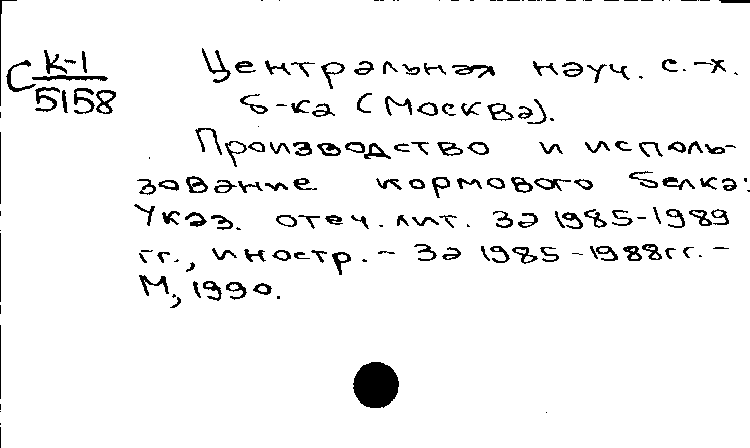 С К-1
5158
Центральная науч. с.-х.
б-ка (Москва).
Производство и исполь-
зование кормового белка:
Указ. отеч. лит. за 1985-1989
гг., иностр. - за 1985-1988гг. -
М, 1990.